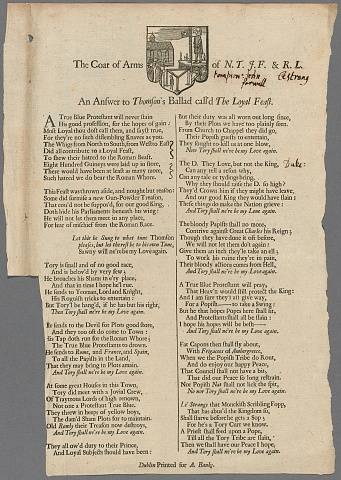 The Coat of Arms of N. T. J. F. & R. L.
An Answer to Thomson's Ballad call'd The Loyal Feast.
A True Blue Protestant will never stain
His good profession, for the hopes of gain:
Most Loyal thou dost call them, and say'st true,
For they're no such dissembling Knaves as you.
The Whigs from North to South, from West to East
Did all contribute to a Loyal Feast,
To shew their hatred to the Roman Beast.
Eight Hundred Guineys were laid up in store,
There would have been at least as many more,
Such hatred we do bear the Roman Whore.
This Feast was thrown aside, and nought but treason:
Some did surmise a new Gun-Powder Treason,
That can'd not be suppos'd, for our good King,
Doth hide his Parliaments beneath his wing:
He will not let them meet in any place,
For fear of mischief from the Roman Race.
Let this be Sung to what tune Thomson
pleases, but let thereof be to become Time,
Surely will ne're be my Love again.
Tory is fins'd and of no good race,
And is belov'd by very few;
He breaches his Shams in ev'ry place,
And that in time I hope he'l rue.
He sends to Yeoman, Lord and Knight,
His Roguish tricks to entertain:
But Tory I be hang'd, if he has but his right,
Thou Tory shall ne're be my Love again.
He sends to the Devil for Plots good store,
And they too oft do come to Town:
His Tap doth run for the Roman Whore;
The True Blue Protestants to drown.
He sends to Rome, and France, and Spain,
To all the Papists in the Land,
That they may bring in Plots amain.
And Tory shall ne're be my Love again.
At some great Houses in this Town,
Tory did meet with a Jovial Crew,
Of Traytrous Lords of high renown,
Not one a Protestant True Blue.
They threw in heaps of yellow boys,
The damn'd Sham Plots for to maintain.
Old Romly their Treason now destroys,
And Tory shall ne're be my Love again.
They all ow'd duty to their Prince,
And Loyal Subjects should have been:
But their duty was all worn out long since,
By their Plots we have too plainly seen.
From Church to Chappel they did go,
Their Popish gusto to entertain,
They sought to sell us at one blow,
Now Tory shall ne're be my Love again.
The D. They Love, but not the King,
Can any tell a reson why,
Can any tale or tydings bring,
Why they should raise the D. so high?
They'd Crown him if they might have leave,
And our good King they would have slain:
These things do make the Nation grieve:
And Tory shall ne're be my Love again.
The bloody Papist shall no more,
Contrive against Great Charles his Reign;
Though they have done it oft before,
We will not let them do't again:
I Give them an inch they'le take an ell:
To work his ruine they're in pain,
Their bloody actions comes from Hell,
And Tory shall ne're be my Love again.
A True Blue Protestant will pray,
That Heav'n would still protect the King:
And I am sure they'l all give way,
For a Popish—— to take a Swing:
But he that hopes Popes here shall sit,
And Protestants shall all be slain:
I hope his hopes will be besh——
And Tory shall ne're be my Love again.
Fat Capons then shall fly about,
With Frigacees of Ambergreece,
When we the Popish Tribe do Rout,
And do enjoy our happy Peace,
That Council shall not have a bit,
That did our Peace so long restrain.
Nor Popish Nat shall not lick the spit,
No nor Tory ne're be my Love again.
Le Strange that Monckish Scribling Fopp,
That has abus'd the Kingdom so,
Shall starve before he gets a Sop;
For he's a Tory Curr we know.
A Priest shall feed upon a Pope,
Till all the Tory Tribe are slain,
Then we shall have our Peace I hope,
And Tory shall ne're be my Love again.
Dublin Printed for A. Banks.
Thompson: John
farwell
LeStrang
Duke: